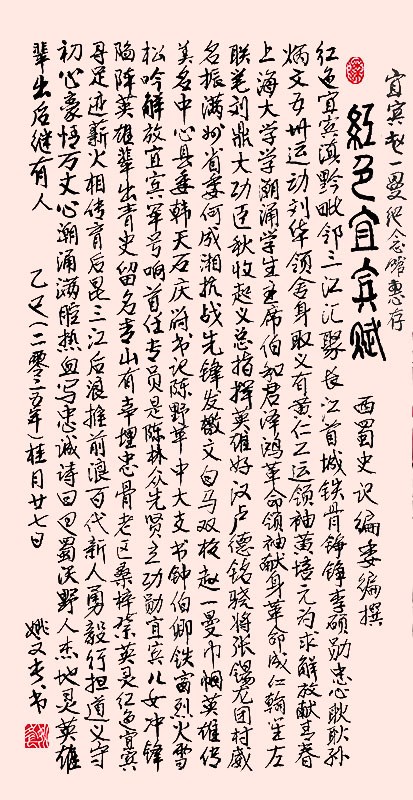 宜宾赵一曼纪念馆惠存
红色宜宾赋
西蜀史记编委编撰
红色宜宾滇黔毗邻三江汇聚长江首城铁骨铮锋李硕勋忠心耿耿孙
炳文五卅运动刘华领舍身取义有黄仁工运领袖黄培元为求解放献青春
上海大学学潮涌学生主席伯和君泽鸿革命领袖献身革命成仁翰笙左
联笔刘鼎大功臣秋收起义总指挥英雄好汉卢德铭骁将张锡龙团村威
名振满州省委何成湘抗战先锋发檄文白马双枪赵一曼巾帼英雄传
美名中心县垂韩天石庆符书记陈野苹中大支书钟伯卿铁窗烈火雪
松吟解放宜宾军号响首任专员是陈林众先贤立功勋宜宾儿女冲锋
陷阵英雄辈出青史留名青山有幸埋忠骨老区桑梓祭英灵红色宜宾
寻足迹薪火相传育后昆三江后浪推前浪百代新人勇毅行担道义守
初心豪情万丈心潮涌满腔热血写忠诚诗曰蜀沃野人杰地灵英雄
辈出后继有人
乙巳(二零二五年)桂月廿七日
姚又書书